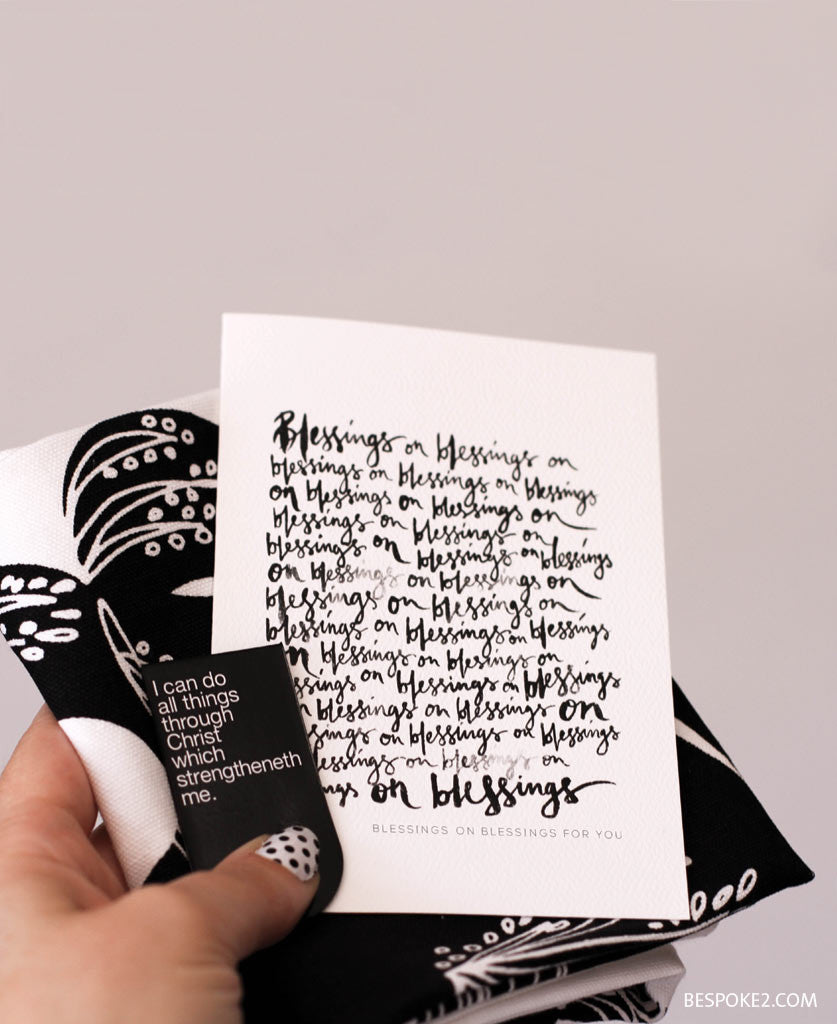 Blessings on blessings on
blessings on blessings on blessings
on blessings on blessings on
blessings on blessings on
blessings on blessings on blessings
on blessings on blessings on
blessings on blessings on
blessings on blessings on blessings
blessings on blessings on
blessings on blessings
blessings on blessings on
on blessings on blessings
on blessings on
on blessings
BLESSINGS ON BLESSINGS FOR YOU
I can do
all things
through
Christ
which
strengtheneth
me.
BESPOKE2.COM